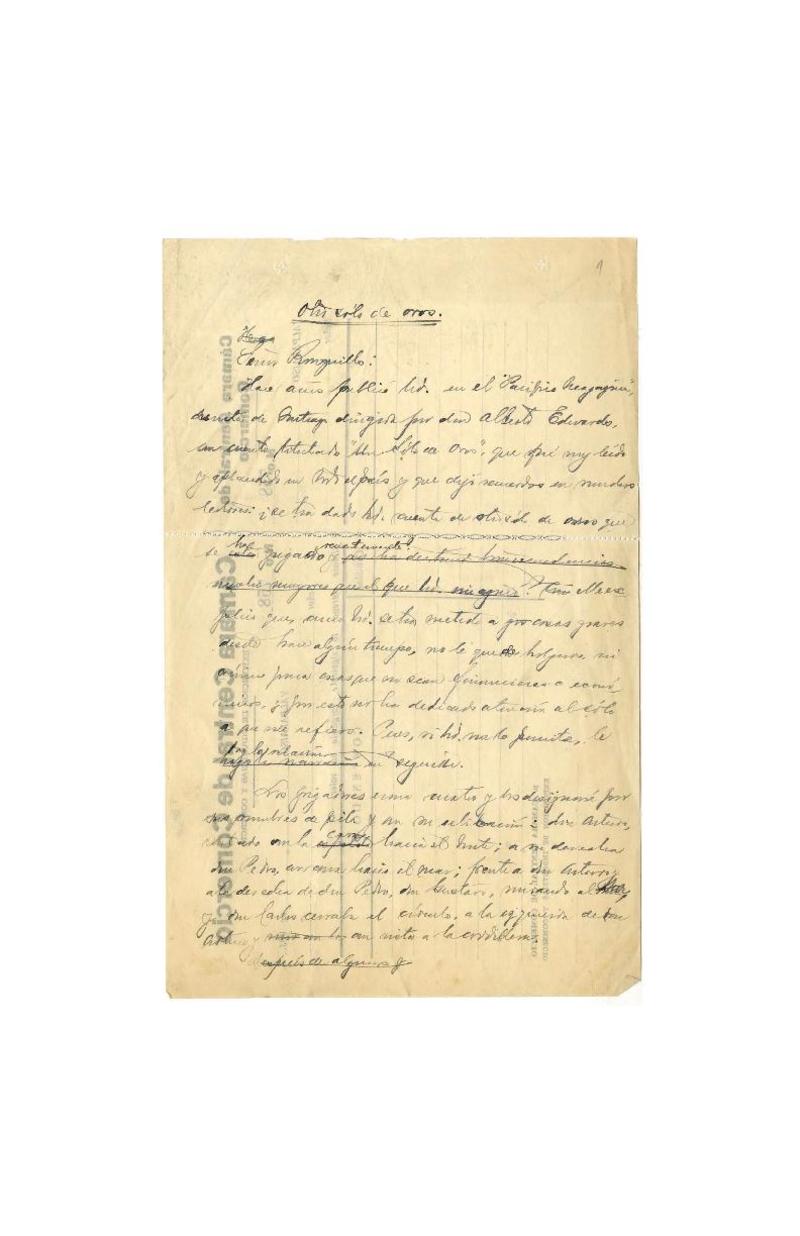 Otro sólo de oros.
Señor Ronquillo:
Hace años publicó Ud. en el "Pacífico Magazine",
revista de Santiago dirigida por don Alberto Edwards,
un cuento titulado "Un Sólo de Oros", que fué muy leído
y aplaudido en todo el país y que dejó recuerdos en muchos
lectores; ¿se ha dado Ud. cuenta de otro sólo de oros que
se ha jugado recientemente?
muchos mayores que el que Ud. imaginó?
que, como Ud. se ha metido a cosas graves
desde hace algún tiempo, no le quede holgura, ni
ánimo para cosas que no sean financieras o econó-
micas, y por esto no ha dedicado atención al sólo
a que me refiero. Pues, si Ud. me lo permite, le
hago la relación en seguida.
Los jugadores eran cuatro y los designaré por
sus nombres de pila y con su ubicación: don Arturo,
sentado con la cara hacia el Norte; a su derecha
don Pedro, con cara hacia el mar; frente a don Arturo y
a la derecha de don Pedro, don Gustavo, mirando al Sur,
y don Carlos cerraba el círculo, a la izquierda de don
Arturo y con vista a la cordillera.
después de algunas
1
Cámara Central de Comercio